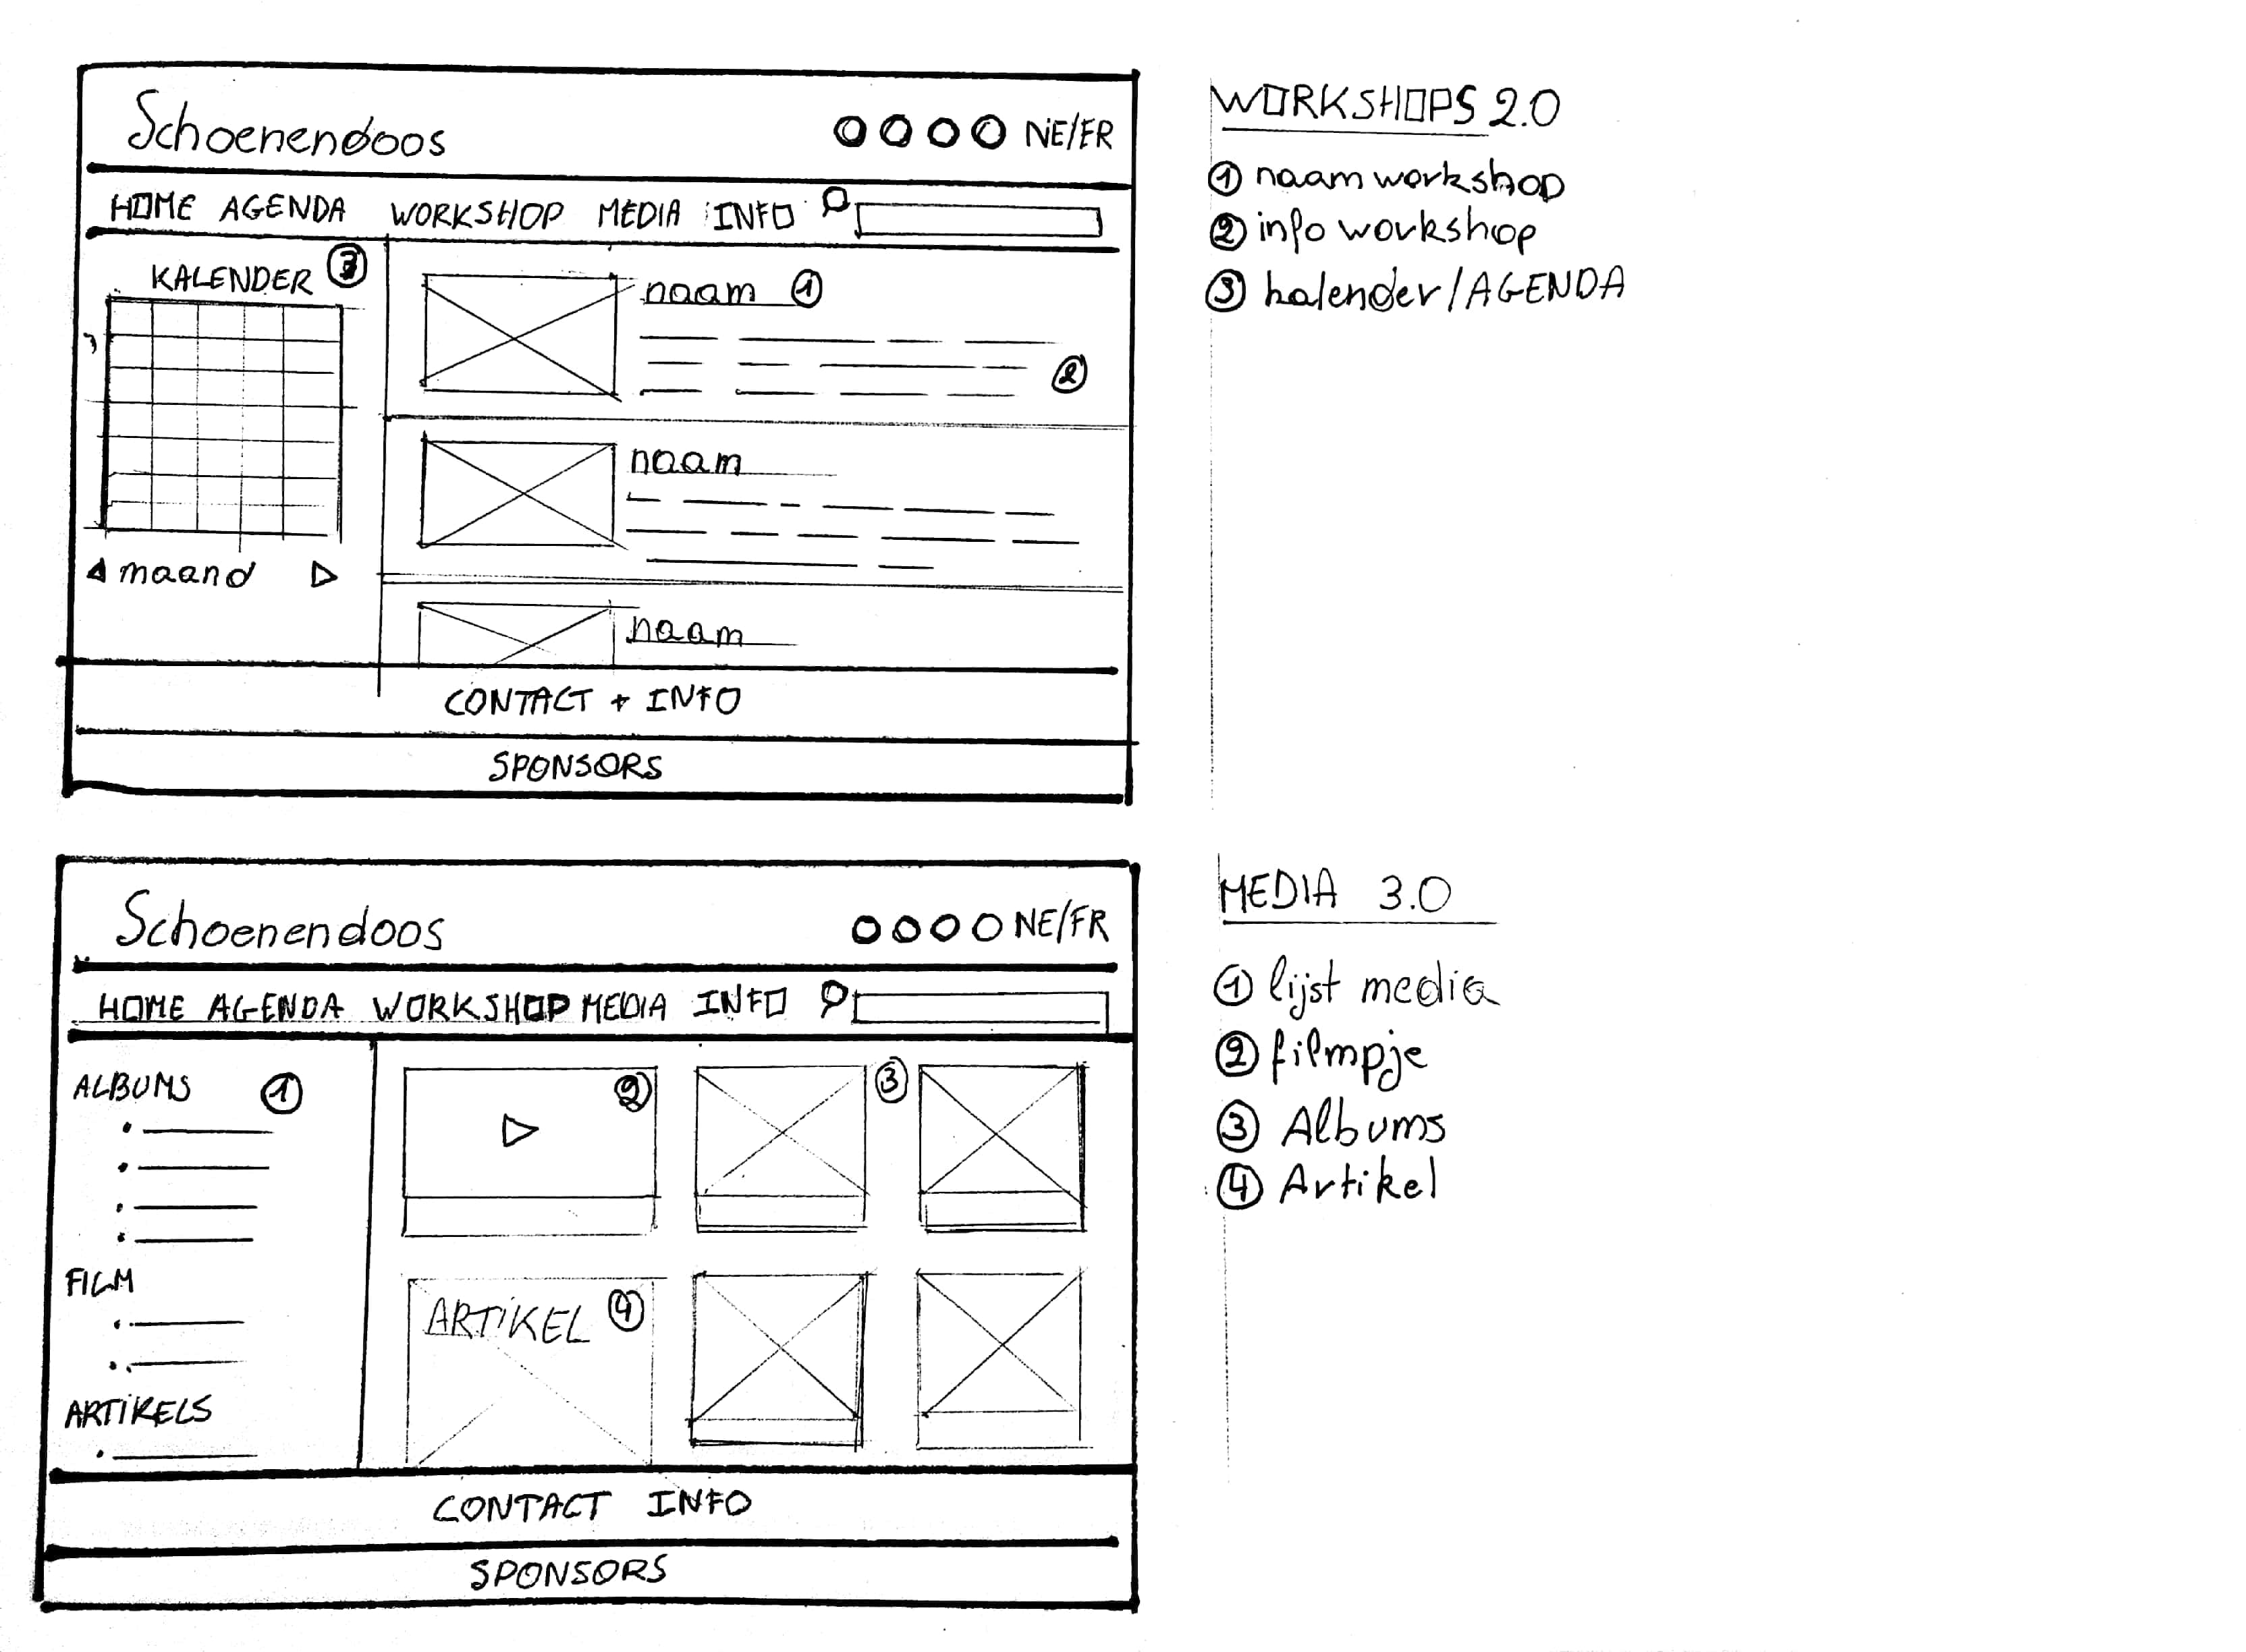 Schoenendoos NE/FR
HOME AGENDA WORKSHOP MEDIA INFO
KALENDER 3
naam 1
2
naam
maand
naam
CONTACT + INFO
SPONSORS
WORKSHOPS 2.0
1 naam workshop
2 info workshop
3 kalender/AGENDA
Schoenendoos NE/FR
HOME AGENDA WORKSHOP MEDIA INFO
ALBUMS 1
2
3
FILM
ARTIKEL 4
ARTIKELS
CONTACT INFO
SPONSORS
MEDIA 3.0
1 lijst media
2 filmpje
3 Albums
4 Artikel